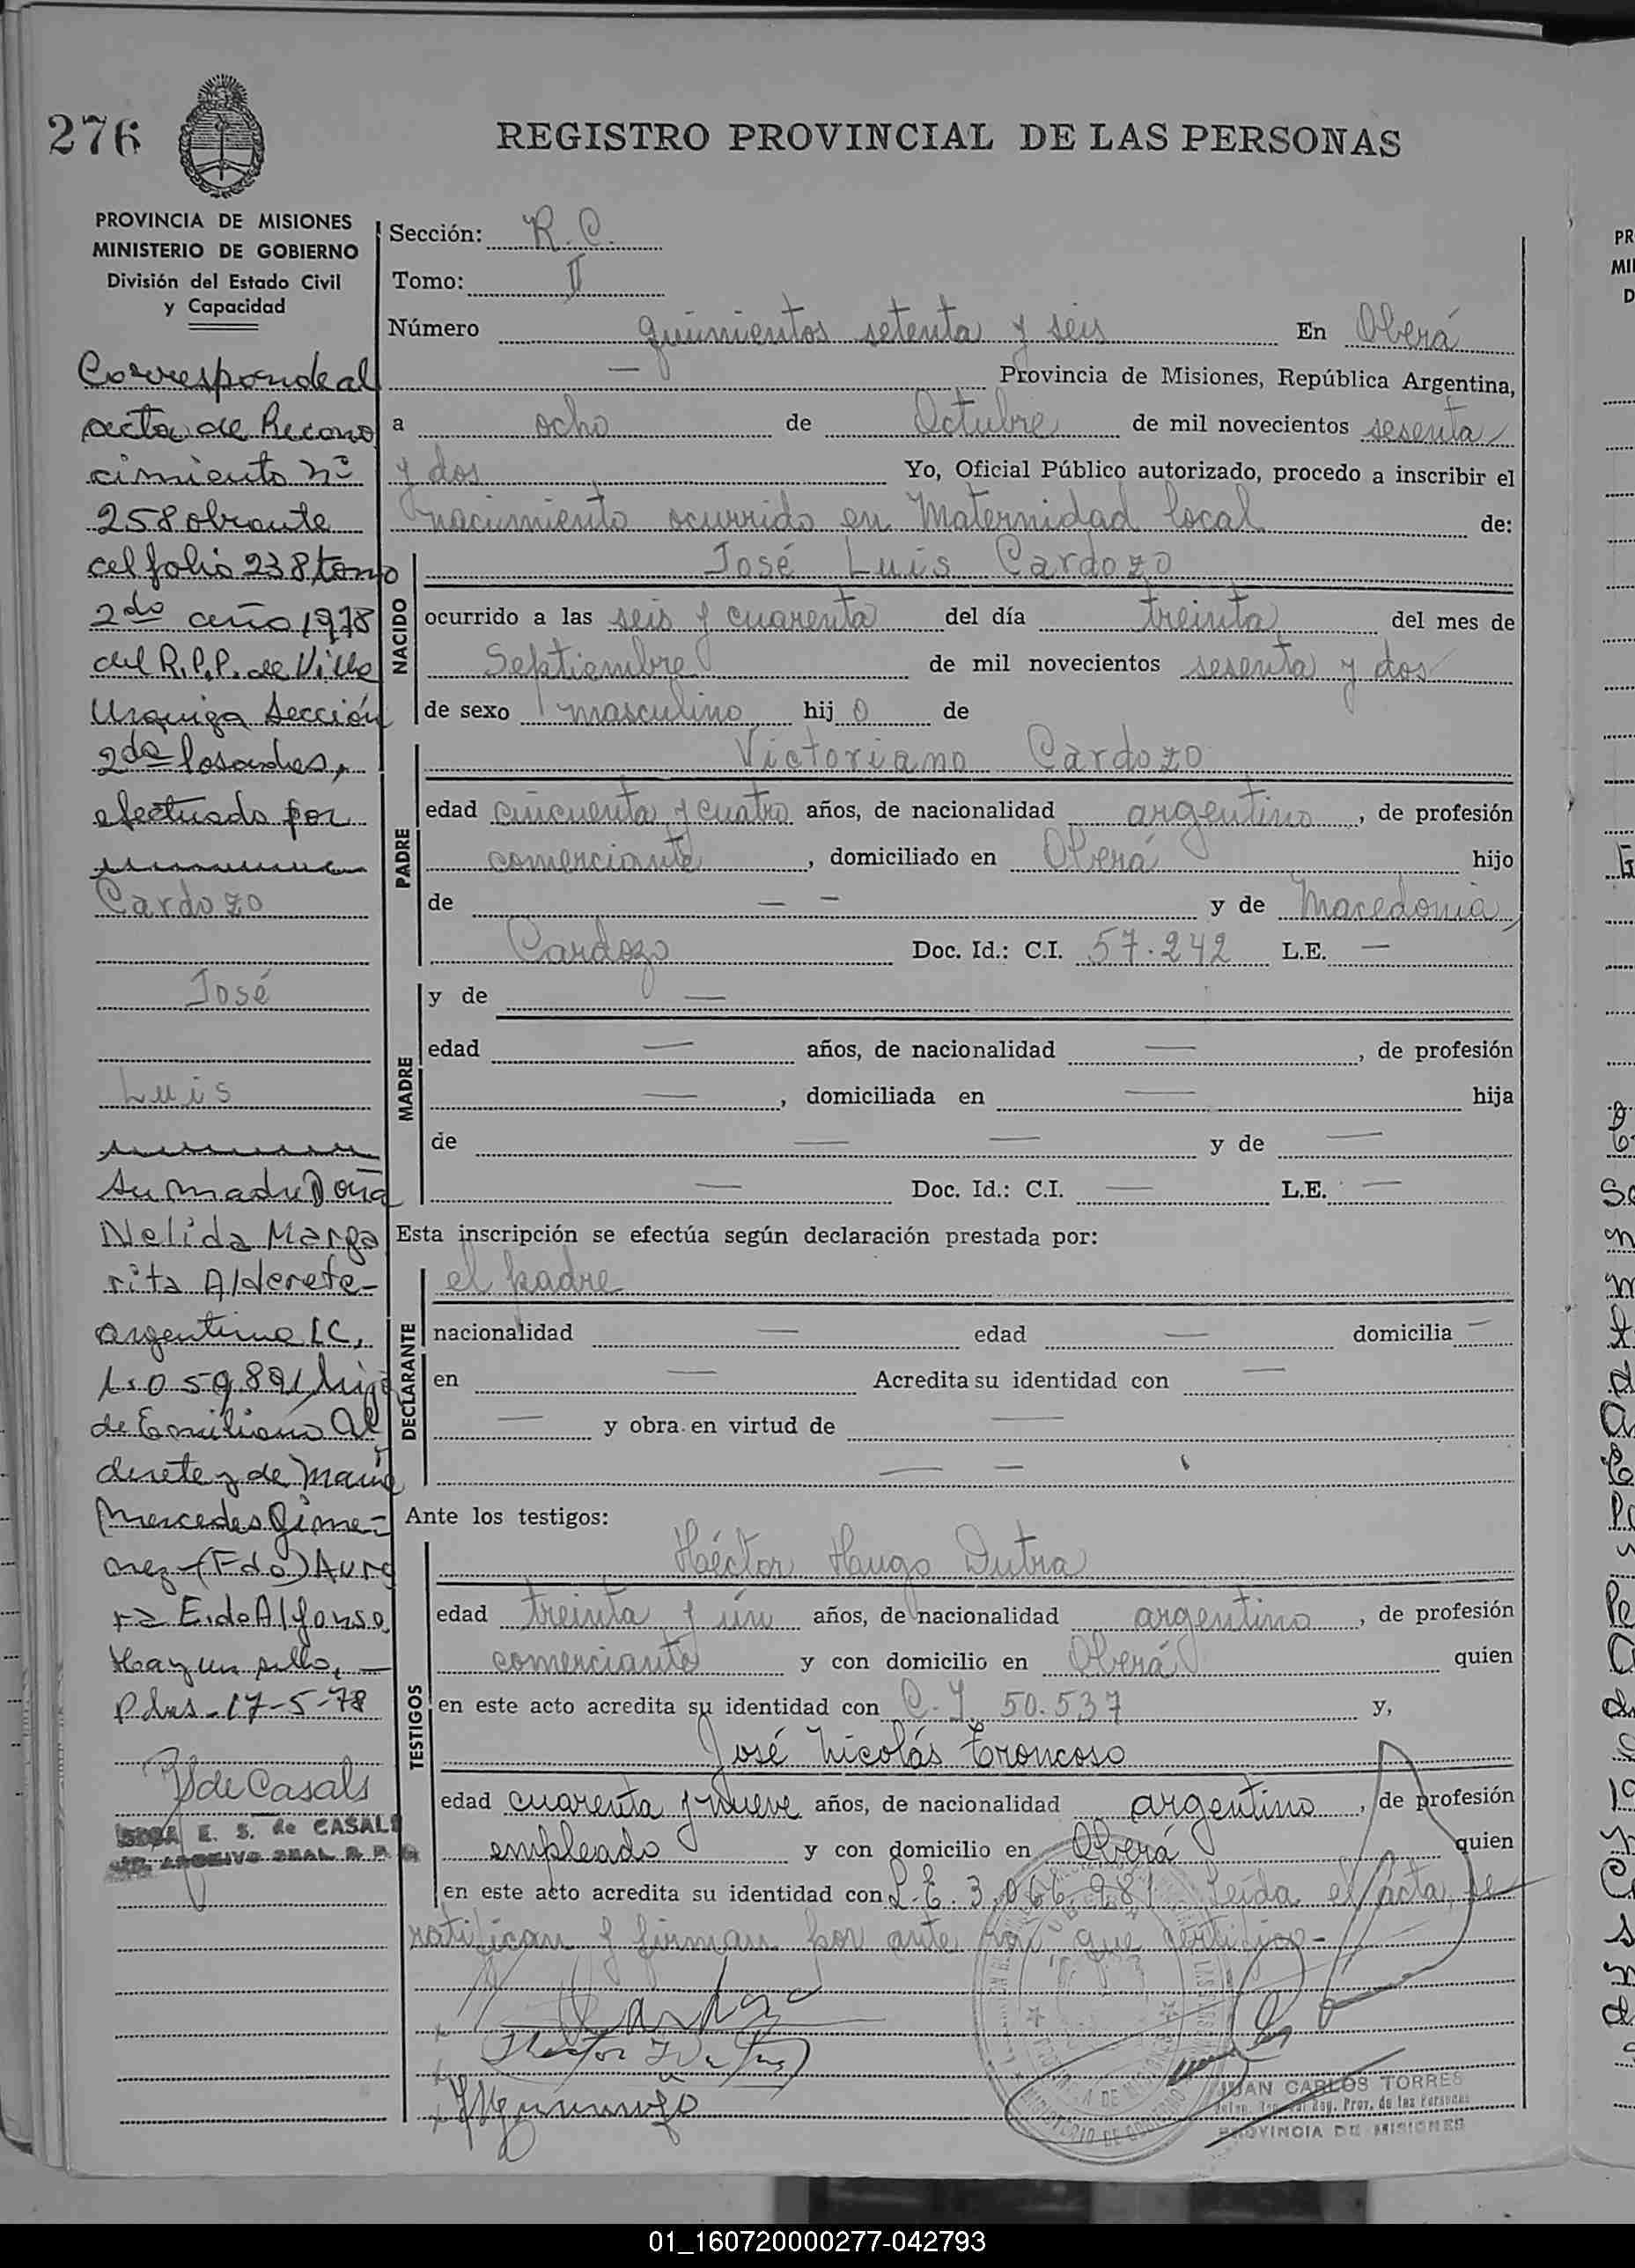 276
REGISTRO PROVINCIAL DE LAS PERSONAS
PROVINCIA DE MISIONES
MINISTERIO DE GOBIERNO
División del Estado Civil
y Capacidad
Corresponde al
acta de Recono
cimiento nº
258 obrante
al folio 238, tomo
2do año 1978
del R.P.P. de Villa
Urquiza Sección
2da Posadas,
efectuado por
Cardozo
José
Luis
Su madre Doña
Nelida Marga
rita Alderete-
argentina LC,
1.059.891, hija
de Emiliano Al
derete y de María
Mercedes Gime-
nez-(Fdo) Auro
ra E. de Alfonso,
Hay un sello,-
Pdas-17-5-78
de Casals
E. S. de CASALS
Sección: R.C.
Tomo: II
Número quinientos setenta y seis En Oberá
— Provincia de Misiones, República Argentina,
a ocho de Octubre de mil novecientos sesenta
y dos Yo, Oficial Público autorizado, procedo a inscribir el
nacimiento ocurrido en Maternidad local de:
NACIDO
José Luis Cardozo
ocurrido a las seis y cuarenta del día treinta del mes de
Septiembre de mil novecientos sesenta y dos
de sexo masculino hij o de
PADRE
Victoriano Cardozo
edad cincuenta y cuatro años, de nacionalidad argentino, de profesión
comerciante, domiciliado en Oberá hijo
de — — y de Macedonia
Cardozo Doc. Id.: C.I. 57.242 L.E. —
MADRE
y de —
edad — años, de nacionalidad —, de profesión
—, domiciliada en — hija
de — — y de —
— Doc. Id.: C.I. — L.E. —
Esta inscripción se efectúa según declaración prestada por:
DECLARANTE
el padre
nacionalidad — edad — domicilia —
en — Acredita su identidad con —
— y obra en virtud de —
— —
Ante los testigos:
TESTIGOS
Héctor Hugo Dutra
edad treinta y un años, de nacionalidad argentino, de profesión
comerciante y con domicilio en Oberá quien
en este acto acredita su identidad con C.I. 50.537 y,
José Nicolás Troncoso
edad cuarenta y nueve años, de nacionalidad argentino, de profesión
empleado y con domicilio en Oberá quien
en este acto acredita su identidad con L.E. 3.066.981 Leída el acta, se
ratifican y firman por ante mí que certifico-
JUAN CARLOS TORRES
Reg. Prov. de las Personas
PROVINCIA DE MISIONES
01_160720000277-042793